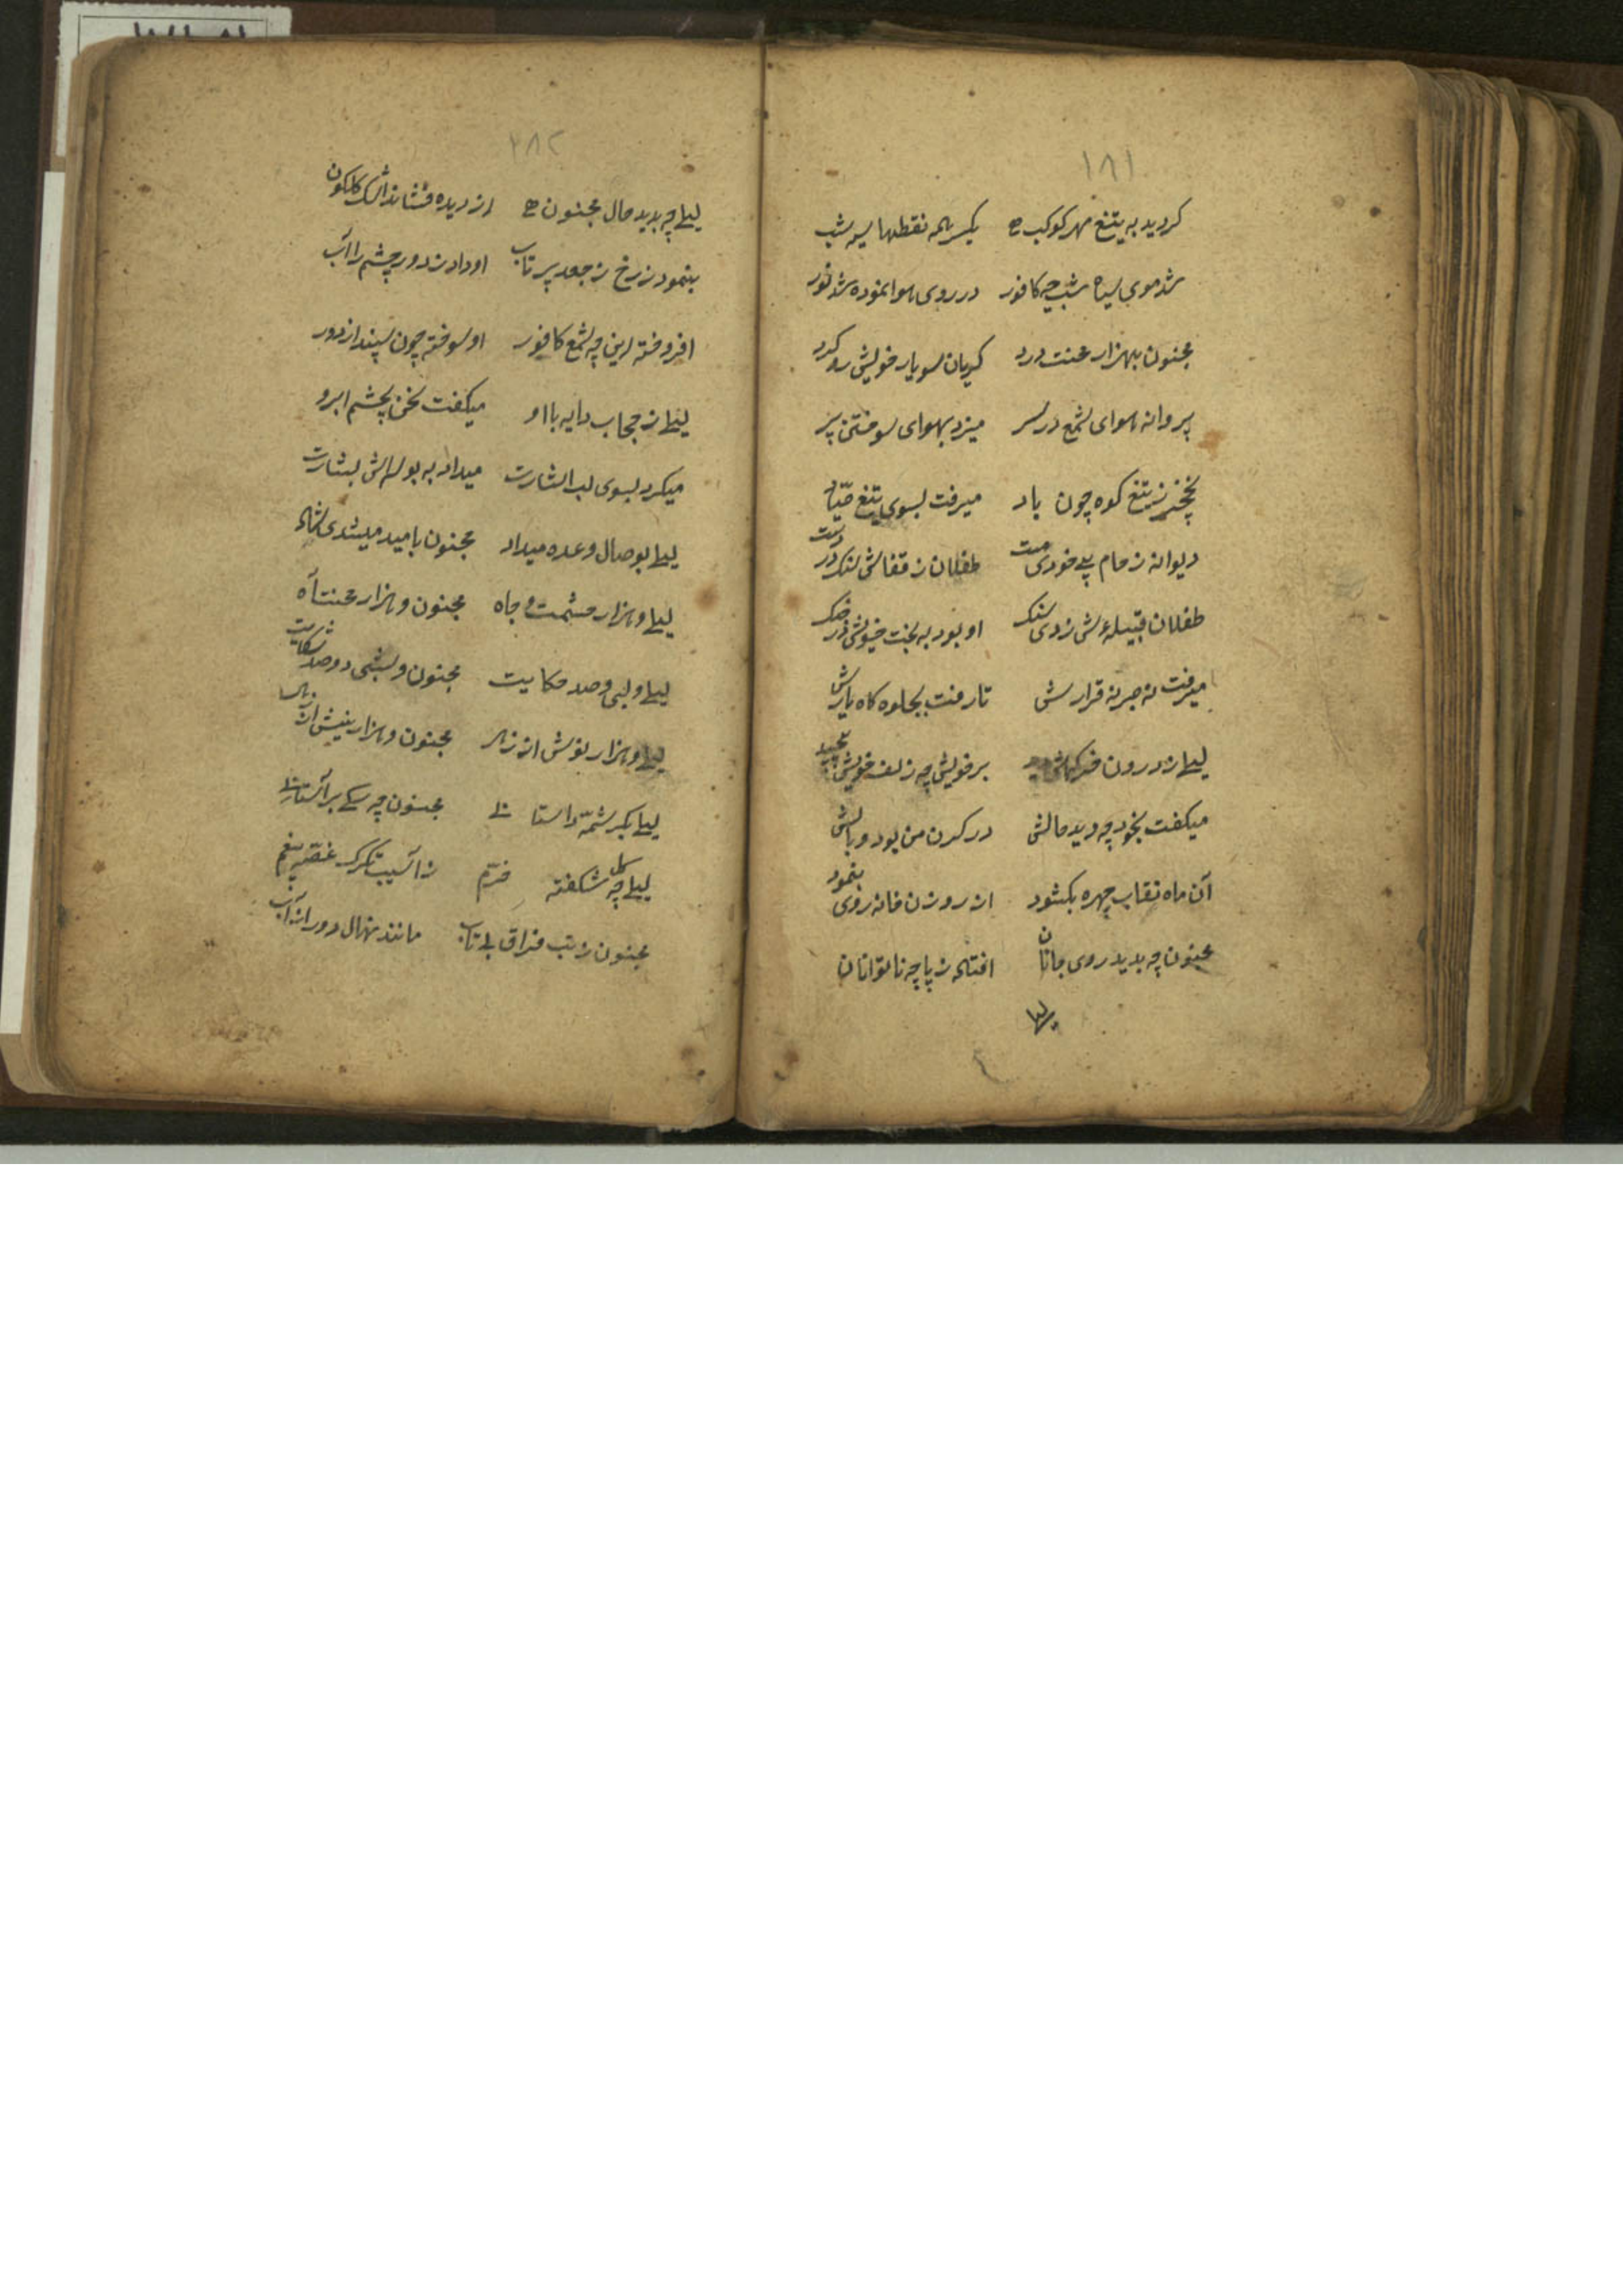 ۱۸۱
کردید به تیغ مهر کوکب یکسر همه نقطها سیه شب
شد موی سیاه شب چه کافور در روی هوا نموده شد نور
مجنون بهزار محنت و درد کریان سو یار خویش رو کرد
پروانه هوای شمع در سر میزد بهوای سوختن پر
نخچیر ز تیغ کوه چون باد میرفت بسوی تیغ صیاد
دیوانه ز جام بیخودی مست طفلان ز قفاش سنک در دست
طفلان قبیلهٔ ش زدی سنک او بود به بخت خویش در جنک
میرفت نه صبر نه قرارش تا رفت بجلوه کاه یارش
لیلی ز درون خرکهش دید بر خویش چه زلف خویش پیچید
میکفت بخود چه دید حالش در کردن من بود وبالش
آن ماه نقاب چهره بکشود از روزن خانه روی بنمود
مجنون چه بدید روی جانان افتاد ز پا چه ناتوانان
لیلی
۲۸۲
لیلی چه بدید حال مجنون از دیده فشاند اشک کلکون
بنمود ز رخ ز جعد پر تاب او داد ز دور چشم را آب
افروخته این چه شمع کافور او سوخته چون سپند از دور
لیلی ز حجاب دایه با او میکفت سخن بچشم ابرو
میکرد بسوی لب اشارت میداد به بوسهاش بشارت
لیلی بوصال وعده میداد مجنون بامید میشدی شاد
لیلی و هزار حشمت و جاه مجنون و هزار محنت آه
لیلی و لبی و صد حکایت مجنون و شبی و صد شکایت
لیلی و هزار نوش از زهر مجنون و هزار نیش از زهر
لیلی بکرشمهٔ داستانی مجنون چه سکی بر آستانی
لیلی چه کل شکفته خرم ز آسیب تکرک غصه بیغم
مجنون ز تب فراق بی تاب مانند نهال دور از آب